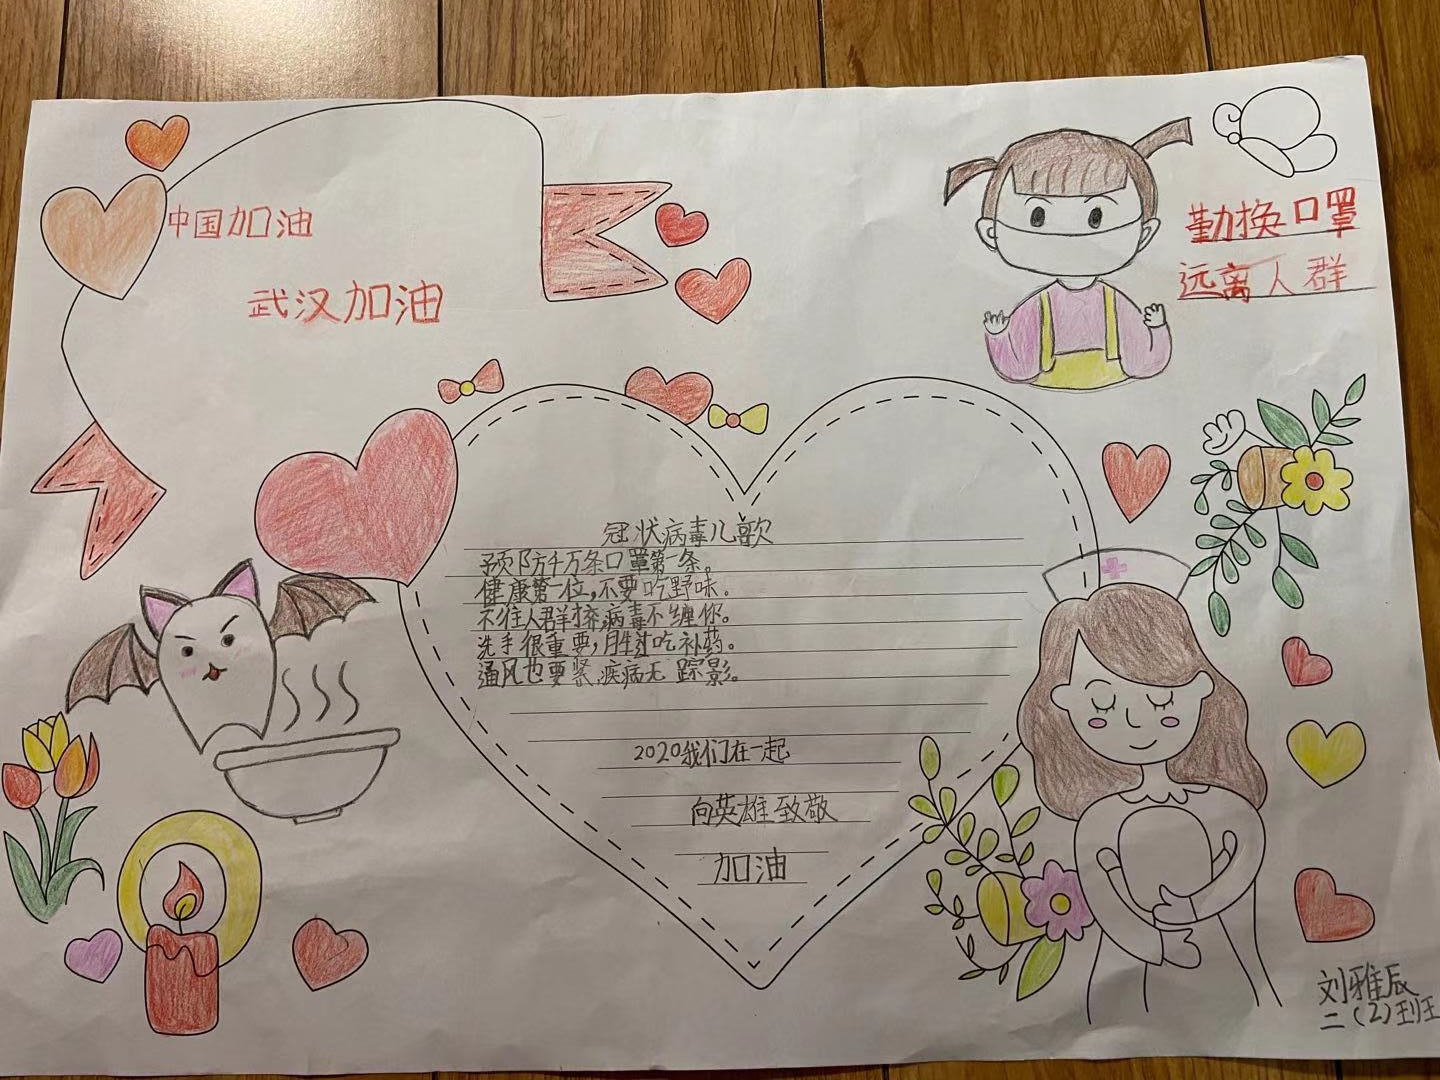 中国加油
武汉加油
勤换口罩
远离人群
冠状病毒儿歌
预防千万条口罩第一条。
健康第一位,不要吃野味。
不往人群挤,病毒不缠你。
洗手很重要,胜过吃补药。
通风也要紧,疾病无踪影。
2020我们在一起
向英雄致敬
加油
刘雅辰
二(2)班